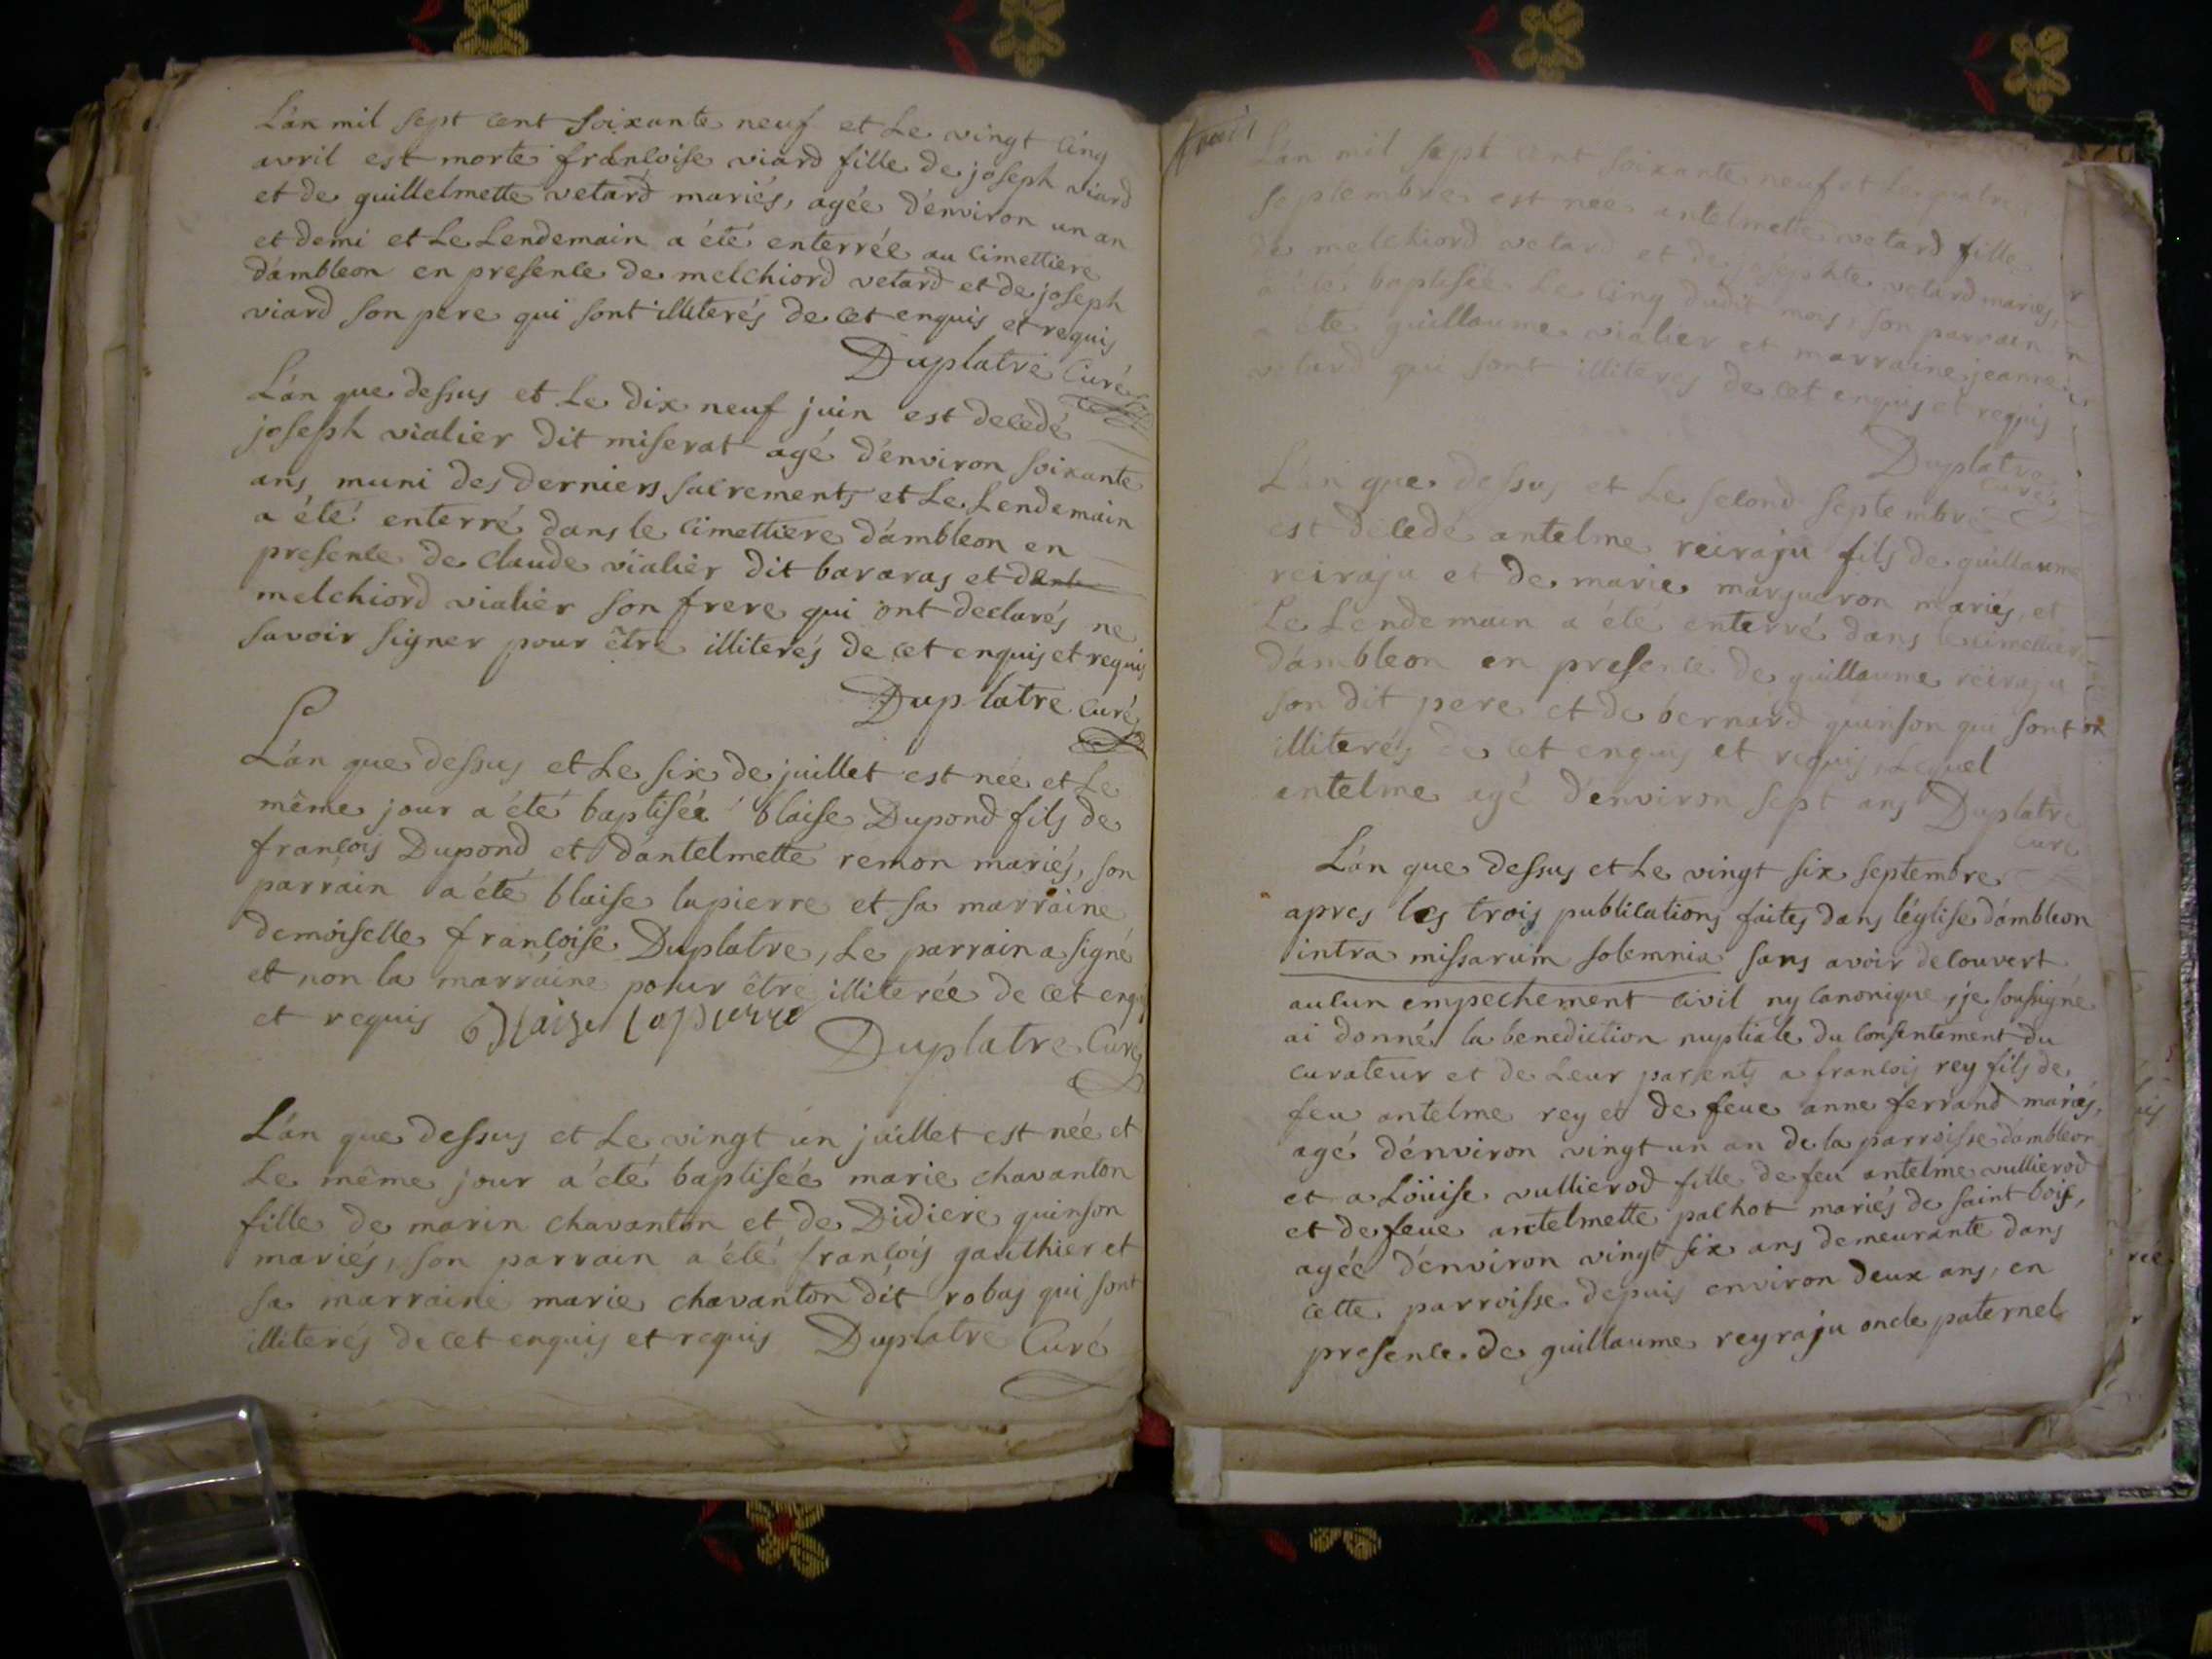 L'an mil sept cent soixante neuf et Le vingt cinq
avril est morte francoise viard fille de joseph viard
et de guillelmette vetard mariés, agée d'environ un an
et demi et Le Lendemain a été enterrée au cimettiere
d'ambleon en presence de melchiord vetard et de joseph
viard son pere qui sont illiterés de cet enquis et requis
Duplatre Curé
L'an que dessus et Le dix neuf juin est decedé
joseph vialier dit miserat agé d'environ soixante
ans muni des derniers sacrements et Le Lendemain
a été enterré dans le cimettiere d'ambleon en
presence de claude vialier dit bararas et de
melchiord vialier son frere qui ont declarés ne
savoir signer pour être illiterés de cet enquis et requis
Duplatre curé
L'an que dessus et Le six de juillet est née et Le
même jour a été baptisée blaise Dupond fils de
francois Dupond et d'antelmette remon mariés, son
parrain a été blaise lapierre et sa marraine
demoiselle francoise Duplatre, Le parrain a signé
et non la marraine pour être illiterée de cet enquis
et requis Blaise Lapierre
Duplatre Curé
L'an que dessus et Le vingt un juillet est née et
Le même jour a été baptisée marie chavanton
fille de marin chavanton et de Didiere quinson
mariés, son parrain a été francois gauthier et
sa marraine marie chavanton dit robas qui sont
illiterés de cet enquis et requis Duplatre Curé
L'an mil sept cent soixante neuf et Le quatre
septembre est née antelmette vetard fille
de melchiord vetard et de josephte vetard mariés,
a été baptisée Le cinq dudit mois, son parrain
a été guillaume vialier et marraine jeanne
vetard qui sont illiterés de cet enquis et requis
Duplatre
curé
L'an que dessus et Le second septembre
est decedé antelme reiraju fils de guillaume
reiraju et de marie margueron mariés, et
Le Lendemain a été enterré dans le cimettiere
d'ambleon en presence de guillaume reiraju
son dit pere et de bernard quinson qui sont
illiterés de cet enquis et requis, Lequel
antelme agé d'environ sept ans Duplatre
curé
L'an que dessus et Le vingt six septembre
apres les trois publications faites dans l'église d'ambleon
intra missarum solemnia sans avoir decouvert
aucun empechement civil ny canonique, je soussigné
ai donné la benediction nuptiale du consentement du
curateur et de Leur parents a francois rey fils de
feu antelme rey et de feue anne ferrand mariés,
agé d'environ vingt un an de la parroisse d'ambleon
et a Loüise vullierod fille de feu antelme vullierod
et de feue antelmette pachot mariés de saint bois,
agée d'environ vingt six ans demeurante dans
cette parroisse depuis environ deux ans, en
presence de guillaume reyraju oncle paternel